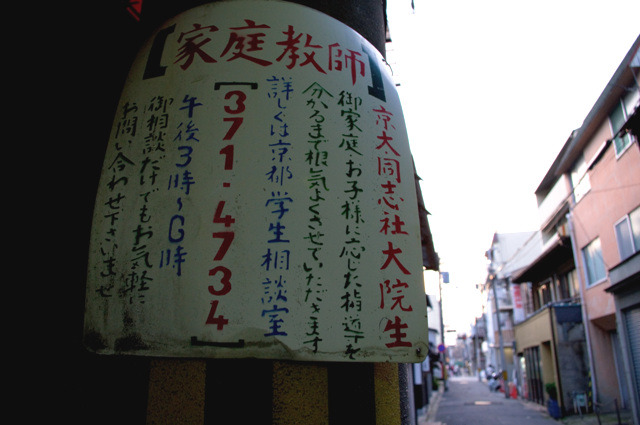 【家庭教師】
京大・同志社大院生
御家庭、お子様に応じた指導を
分かるまで根気よくさせていただきます
詳しくは京都学生相談室
【371-4734】
午後3時〜6時
御相談だけでもお気軽に
お問い合わせ下さいませ